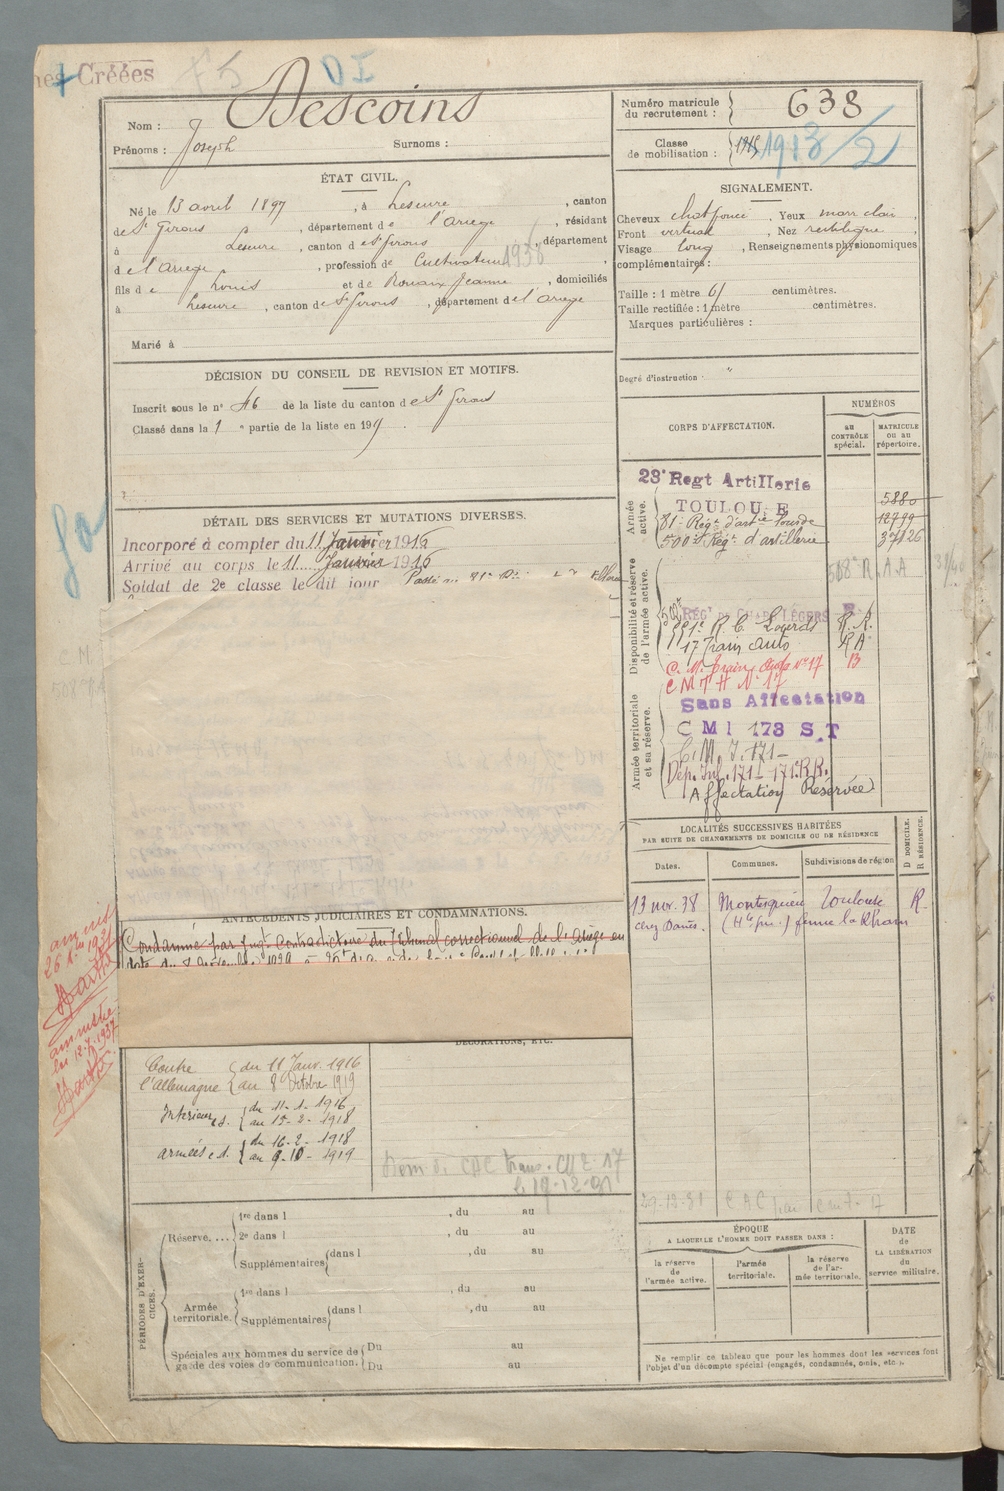 nes Créées
DI
Nom : Descoins
Prénoms : Joseph Surnoms :
Numéro matricule du recrutement : 638
Classe de mobilisation : 1913/2
ÉTAT CIVIL.
Né le 13 avril 1897, à Lescure, canton
de St Girons, département de l'Ariège, résidant
à Lescure, canton de St Girons, département
de l'Ariège, profession de Cultivateur 1936
fils de Louis et de Rouaix Jeanne, domiciliés
à Lescure, canton de St Girons, département de l'Ariège
Marié à
SIGNALEMENT.
Cheveux chat foncé, Yeux marr clair,
Front vertical, Nez rectiligne,
Visage long, Renseignements physionomiques
complémentaires :
Taille : 1 mètre 61 centimètres.
Taille rectifiée : 1 mètre centimètres.
Marques particulières :
Degré d'instruction "
DÉCISION DU CONSEIL DE REVISION ET MOTIFS.
Inscrit sous le n° 46 de la liste du canton de St Girons
Classé dans la 1 e partie de la liste en 191
DÉTAIL DES SERVICES ET MUTATIONS DIVERSES.
Incorporé à compter du 11 Janvier 1916
Arrivé au corps le 11 Janvier 1916
Soldat de 2e classe le dit jour Passé au
CORPS D'AFFECTATION.
NUMÉROS
au CONTRÔLE spécial.
MATRICULE ou au répertoire.
Armée active.
23e Regt Artillerie 5880
TOULOUSE
81e Régt d'artie lourde 12799
500e Régt d'artillerie 37126
Disponibilité et réserve de l'armée active.
508e R.A.A
REGt DE CHARS LÉGERS
511e R. C. Lourds R.R.
17 Train Auto RA
C. M. Train Auto No 17 B
C M T H No 17
Armée territoriale et sa réserve.
Sans Affectation
C M I 173 S.T
C. M. I. 171
Dép. Inf. 171 - 171e R.R.
Affectation Réservée
LOCALITÉS SUCCESSIVES HABITÉES
PAR SUITE DE CHANGEMENTS DE DOMICILE OU DE RÉSIDENCE
D DOMICILE. R RÉSIDENCE.
Dates. Communes. Subdivisions de région
13 nov. 38 Montesquieu Toulouse R.
(Hte Gar.)
29-12-31
ANTÉCÉDENTS JUDICIAIRES ET CONDAMNATIONS.
Condamné par jugt contradictoire du Tribunal correctionnel de l'Ariège en
amnistié
26 Xbre 1931
amnistié
loi 12-7-1937
DÉCORATIONS, ETC.
Contre l'Allemagne du 11 Janv. 1916
au 8 Octobre 1919
Intérieur c.d. du 11-1-1916
au 15-2-1918
armées c.d. du 16-2-1918
au 9-10-1919
PÉRIODES D'EXERCICES.
Réserve....
1re dans l , du au
2e dans l , du au
Supplémentaires dans l , du au
Armée territoriale.
1re dans l , du au
Supplémentaires dans l , du au
Spéciales aux hommes du service de garde des voies de communication.
Du au
Du au
ÉPOQUE
A LAQUELLE L'HOMME DOIT PASSER DANS :
la réserve de l'armée active.
l'armée territoriale.
la réserve de l'armée territoriale.
DATE de LA LIBÉRATION du service militaire.
Ne remplir ce tableau que pour les hommes dont les services font
l'objet d'un décompte spécial (engagés, condamnés, omis, etc.).